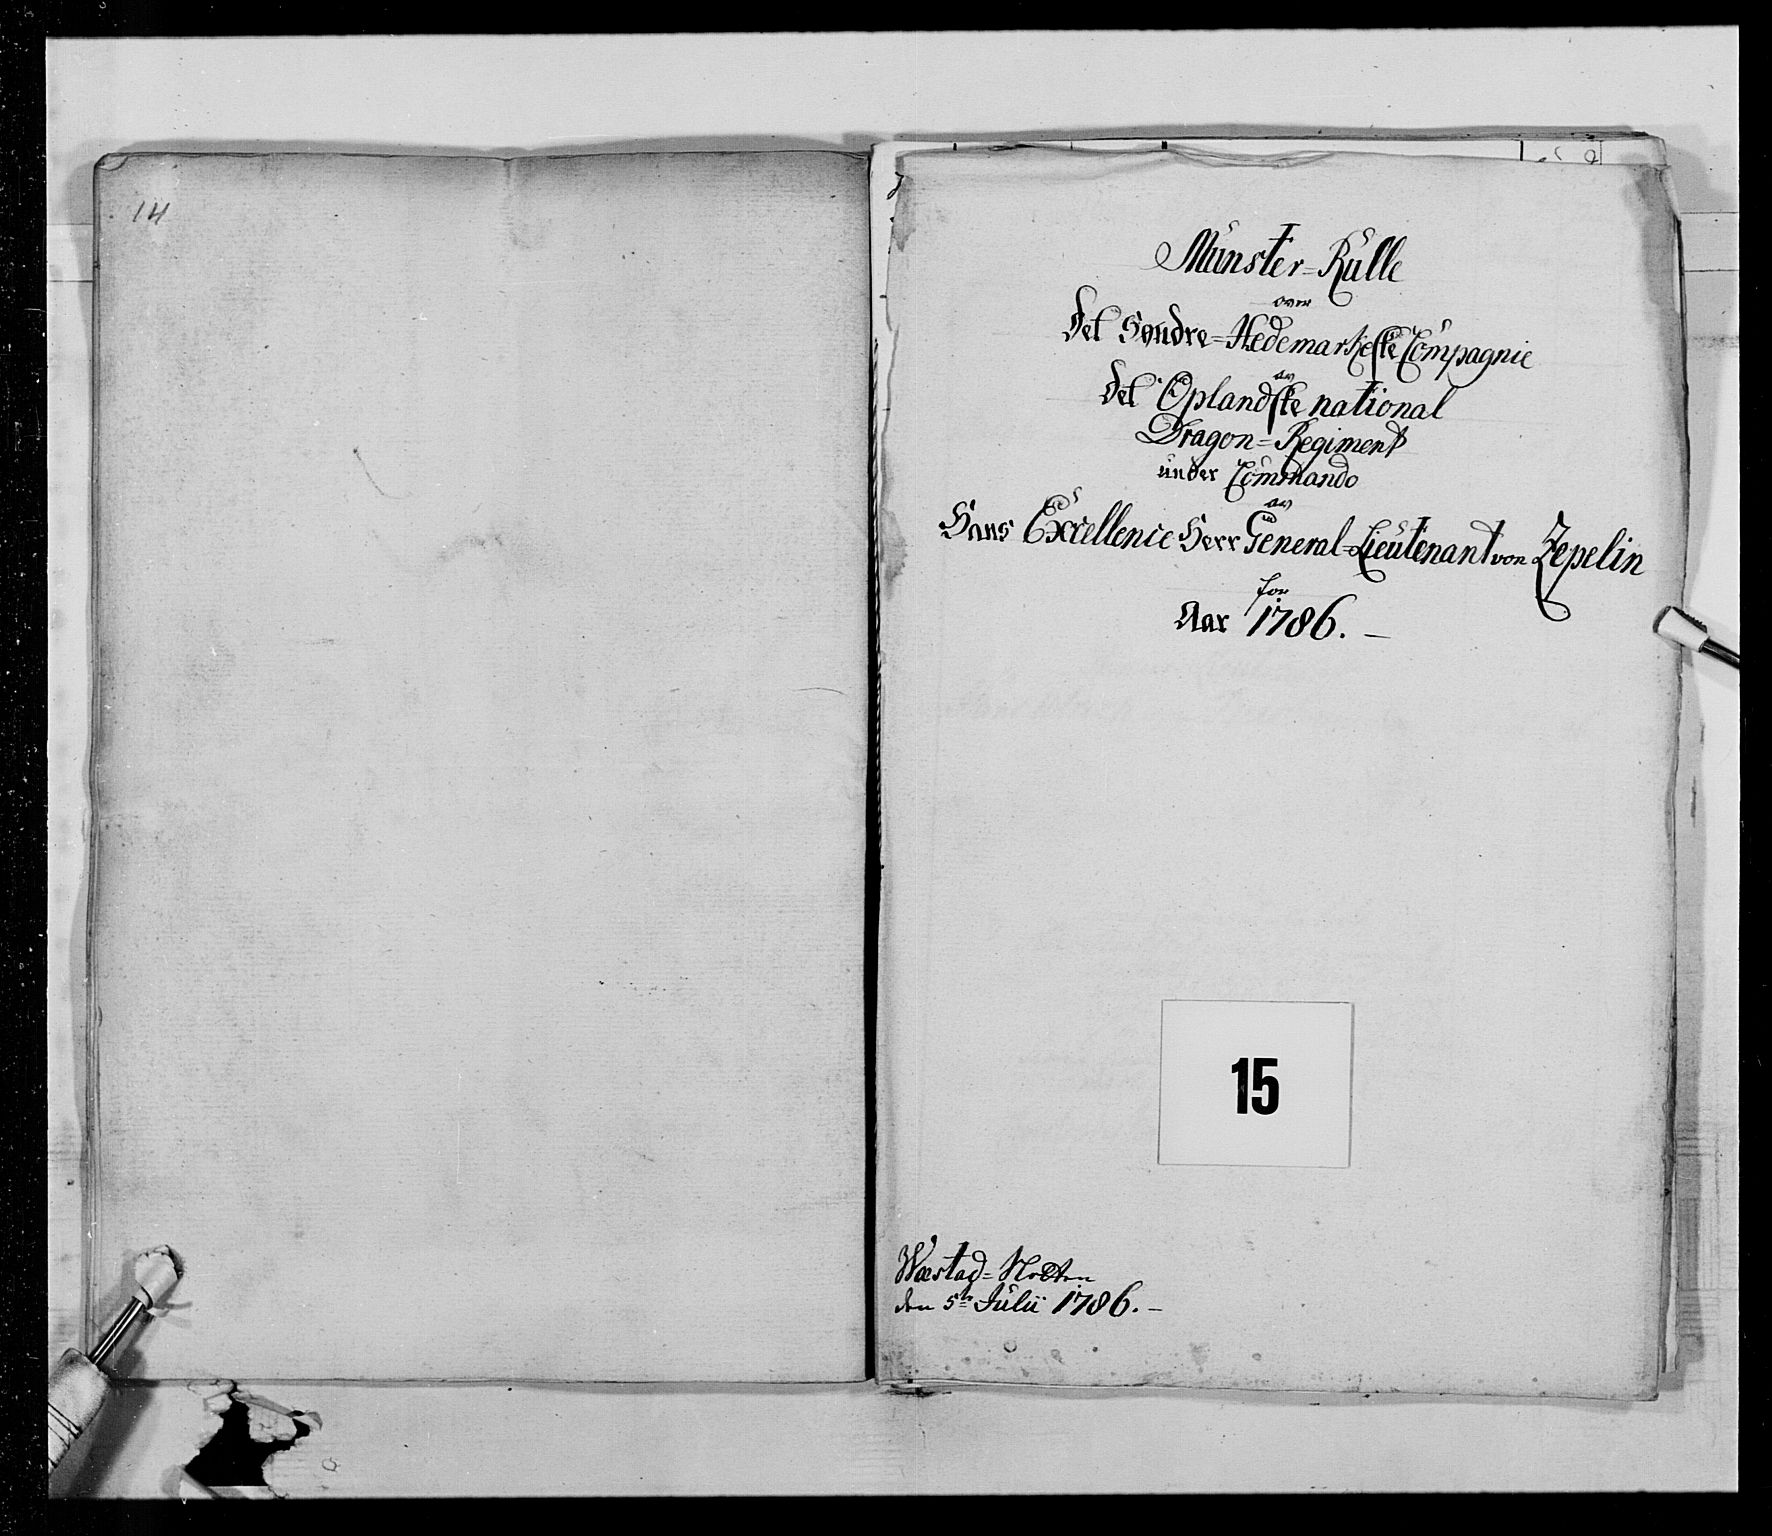 14
Munster=Rulle
over
det Søndre=Hedemarkeske Compagnie
av
det Oplandske national
Dragon=Regiment
under Commando
av
Hans Excellence Herr General=Lieutenant von Zepelin
for
Aar 1786. —
15
den 5te Julii 1786. —